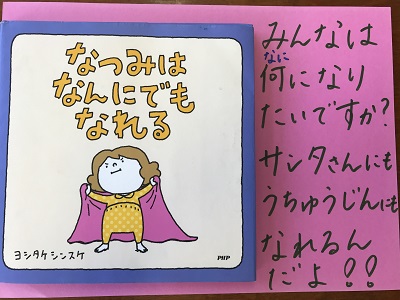 なつみは
なんにでも
なれる
ヨシタケシンスケ
PHP
みんなは
なに
何になり
たいですか?
サンタさんにも
うちゅうじんにも
なれるん
だよ!!